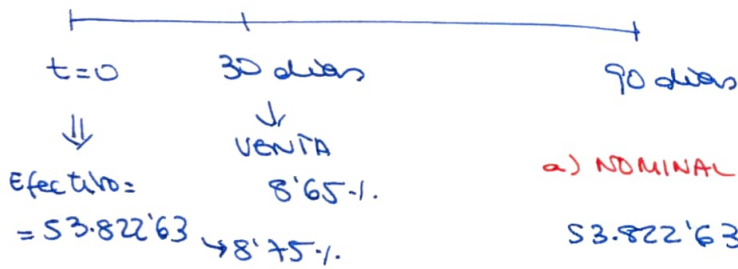 t=0 30 dias 90 dias
⇓ ↓
VENTA
Efectivo= 8'65-/. a) NOMINAL
= 53.822'63 →8'75-/. 53.822'63